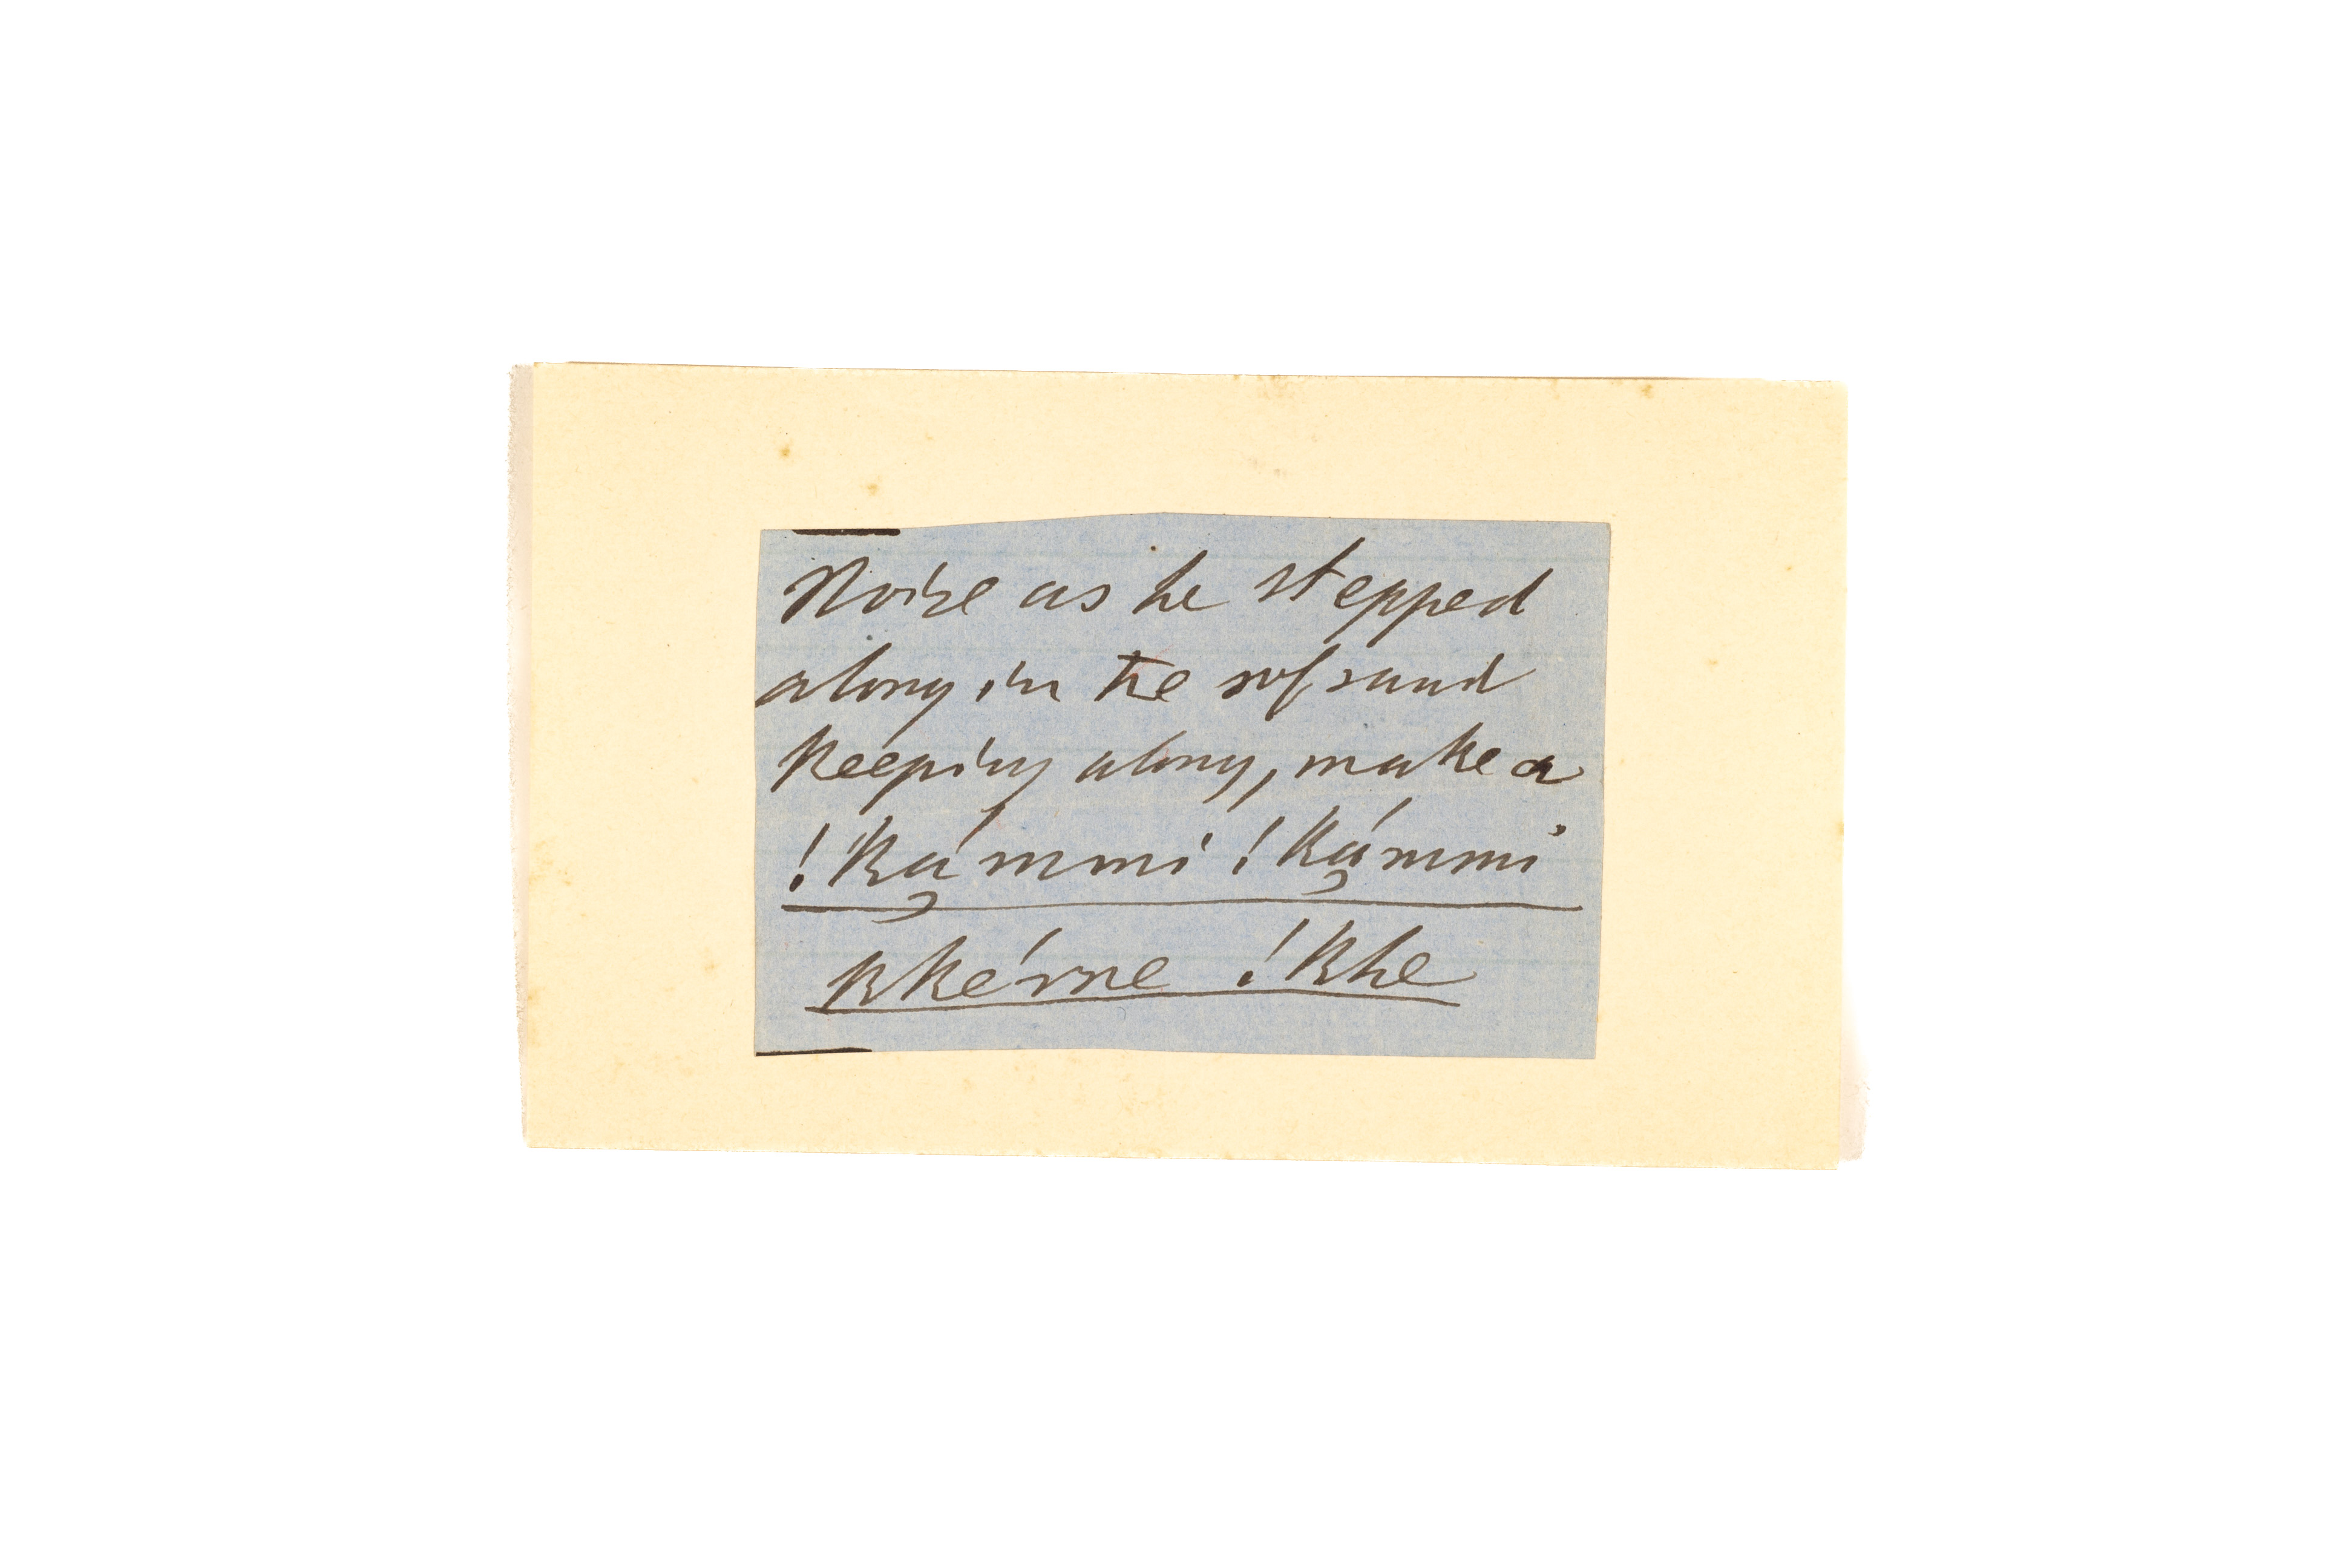 Noise as he stepped
along in the sof sand
keeping along, make a
!ká̦mmi !ká̦mmi
kkérre !khe